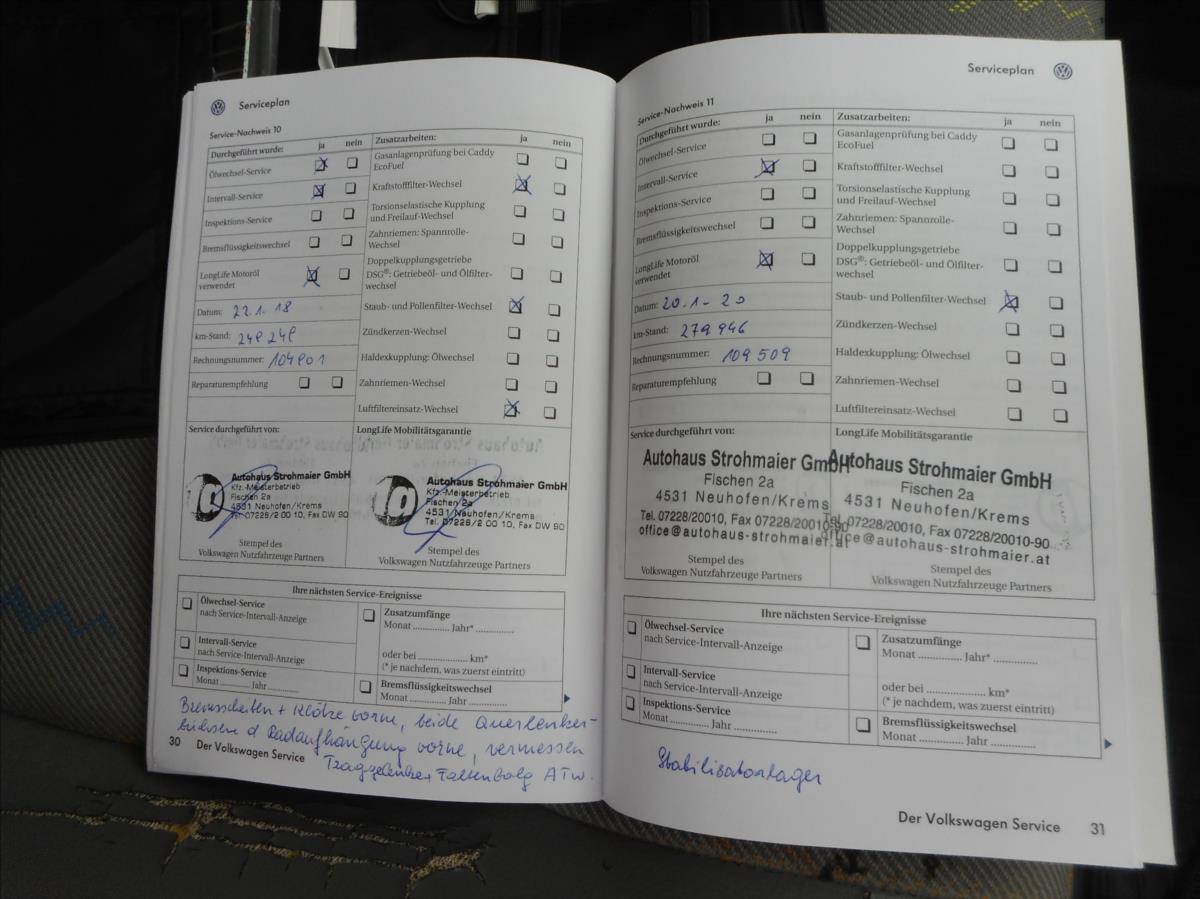 Serviceplan
Service-Nachweis 10
Durchgeführt wurde: ja nein
Ölwechsel-Service
Intervall-Service
Inspektions-Service
Bremsflüssigkeitswechsel
LongLife Motoröl
verwendet
Datum: 22.1.18
km-Stand: 248 248
Rechnungsnummer: 104801
Reparaturempfehlung
Zusatzarbeiten: ja nein
Gasanlagenprüfung bei Caddy
EcoFuel
Kraftstofffilter-Wechsel
Torsionselastische Kupplung
und Freilauf-Wechsel
Zahnriemen: Spannrolle-
Wechsel
Doppelkupplungsgetriebe
DSG®: Getriebeöl- und Ölfilter-
wechsel
Staub- und Pollenfilter-Wechsel
Zündkerzen-Wechsel
Haldexkupplung: Ölwechsel
Zahnriemen-Wechsel
Luftfiltereinsatz-Wechsel
Service durchgeführt von:
Autohaus Strohmaier GmbH
Kfz.-Meisterbetrieb
Fischen 2a
4531 Neuhofen/Krems
Tel. 07228/2 00 10, Fax DW 90
Stempel des
Volkswagen Nutzfahrzeuge Partners
LongLife Mobilitätsgarantie
Autohaus Strohmaier GmbH
Kfz.-Meisterbetrieb
Fischen 2a
4531 Neuhofen/Krems
Tel. 07228/2 00 10, Fax DW 90
Stempel des
Volkswagen Nutzfahrzeuge Partners
Ihre nächsten Service-Ereignisse
Ölwechsel-Service
nach Service-Intervall-Anzeige
Intervall-Service
nach Service-Intervall-Anzeige
Inspektions-Service
Monat ............ Jahr ............
Zusatzumfänge
Monat ............ Jahr* ............
oder bei ................ km*
(* je nachdem, was zuerst eintritt)
Bremsflüssigkeitswechsel
Monat ............ Jahr ............
Bremsscheiben + Klötze vorne, beide Querlenker-
büchsen d Radaufhängung vorne, vermessen
Traggelenke + Faltenbalg ATW.
30 Der Volkswagen Service
Serviceplan
Service-Nachweis 11
Durchgeführt wurde: ja nein
Ölwechsel-Service
Intervall-Service
Inspektions-Service
Bremsflüssigkeitswechsel
LongLife Motoröl
verwendet
Datum: 20.1-20
km-Stand: 279 946
Rechnungsnummer: 109 509
Reparaturempfehlung
Zusatzarbeiten: ja nein
Gasanlagenprüfung bei Caddy
EcoFuel
Kraftstofffilter-Wechsel
Torsionselastische Kupplung
und Freilauf-Wechsel
Zahnriemen: Spannrolle-
Wechsel
Doppelkupplungsgetriebe
DSG®: Getriebeöl- und Ölfilter-
wechsel
Staub- und Pollenfilter-Wechsel
Zündkerzen-Wechsel
Haldexkupplung: Ölwechsel
Zahnriemen-Wechsel
Luftfiltereinsatz-Wechsel
Service durchgeführt von:
Autohaus Strohmaier GmbH
Fischen 2a
4531 Neuhofen/Krems
Tel. 07228/20010, Fax 07228/20010-90
office@autohaus-strohmaier.at
Stempel des
Volkswagen Nutzfahrzeuge Partners
LongLife Mobilitätsgarantie
Autohaus Strohmaier GmbH
Fischen 2a
4531 Neuhofen/Krems
Tel. 07228/20010, Fax 07228/20010-90
office@autohaus-strohmaier.at
Stempel des
Volkswagen Nutzfahrzeuge Partners
Ihre nächsten Service-Ereignisse
Ölwechsel-Service
nach Service-Intervall-Anzeige
Intervall-Service
nach Service-Intervall-Anzeige
Inspektions-Service
Monat ............ Jahr ............
Zusatzumfänge
Monat ............ Jahr* ............
oder bei ................ km*
(* je nachdem, was zuerst eintritt)
Bremsflüssigkeitswechsel
Monat ............ Jahr ............
Stabilisatorlager
Der Volkswagen Service 31